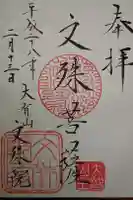 奉拝
文殊菩薩
平成二八年 大有山
二月十三日 文殊院